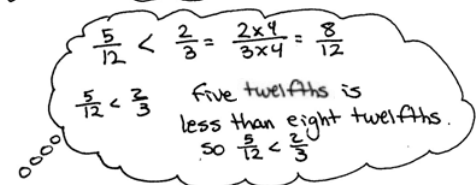 5/12 < 2/3 = 2x4/3x4 = 8/12
5/12 < 2/3 five twelfths is
less than eight twelfths.
so 5/12 < 2/3